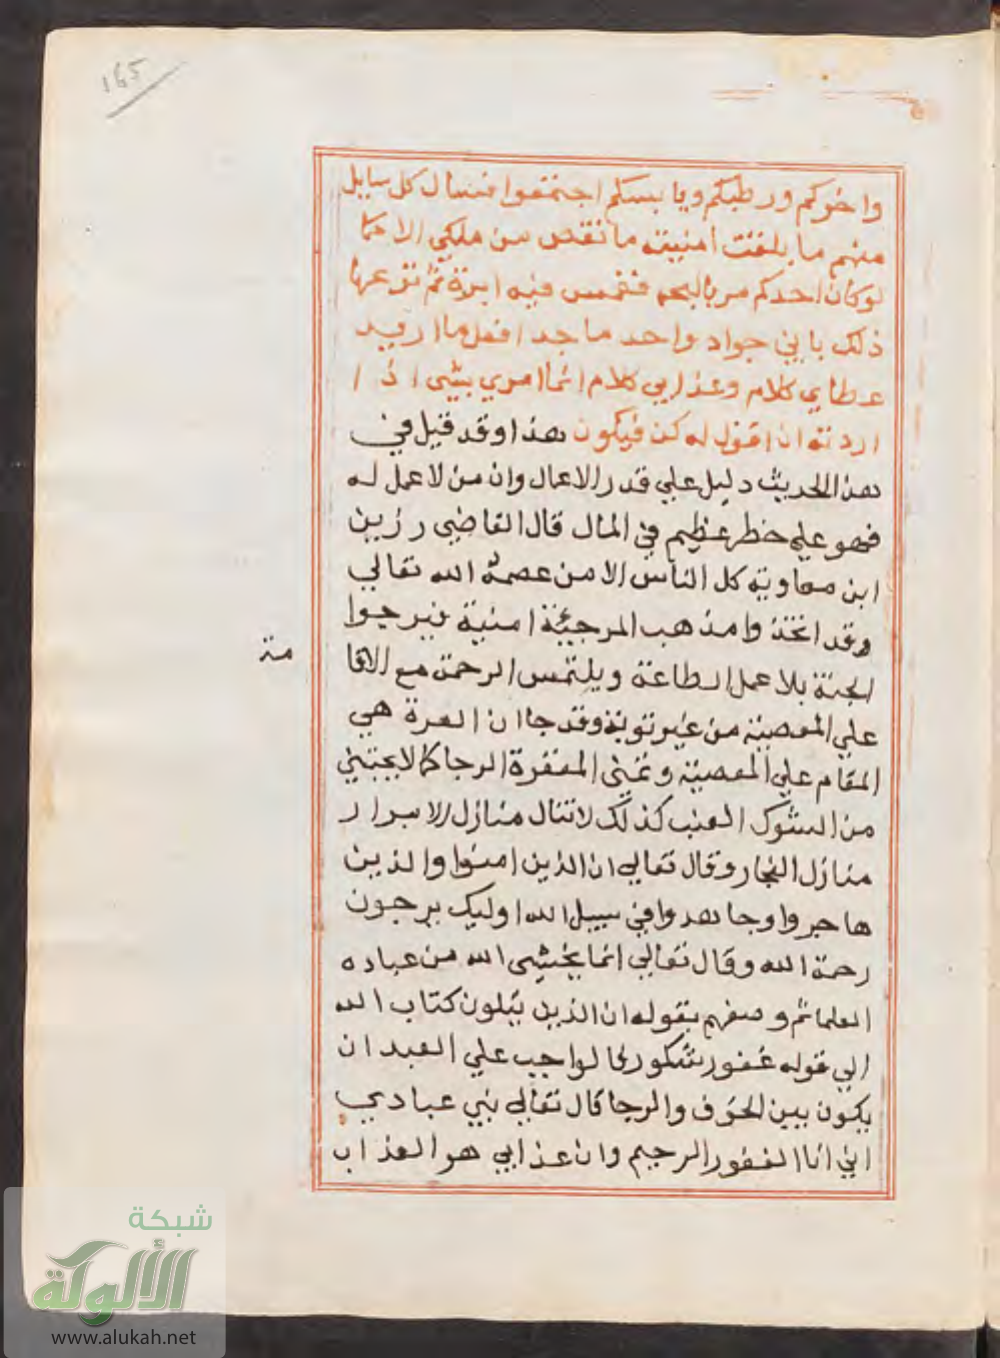 165
واخركم ورطبكم ويابسكم اجتمعوا فسال كل سايل
منهم ما بلغت امنيته ما نقص من ملكي الا كما
لو كان احدكم مر بالبحر فغمس فيه ابرة ثم نزعها
ذلك باني جواد واحد ماجد افعل ما اريد
عطاي كلام وعذابي كلام انما امري بشي اذا
اردته ان اقول له كن فيكون هذا وقد قيل في
هذا الحديث دليل علي قدر الاعمال وان من لا عمل له
فهو علي خطر عظيم في المال قال القاضي رزين
ابن معاوية كل الناس الا من عصمة الله تعالي
وقد اتخذوا مذهب المرجيئة امنية فيرجوا
الجنة بلا عمل الطاعة ويلتمس الرحمة مع الاقا
مة
علي المعصية من غير توبة وقد جا ان الغرة هي
المقام علي المعصية وتمني المغفرة الرجا كما لا يجتني
من الشوك العنب كذلك لا تنال منازل الابرار
منازل الفجار وقال تعالي ان الذين امنوا والذين
هاجروا وجاهدوا في سبيل الله اوليك يرجون
رحمة الله وقال تعالي انما يخشي الله من عباده
العلما ثم وصفهم بقوله ان الذين يتلون كتاب الله
الي قوله غفور شكور فالواجب علي العبد ان
يكون بين الخوف والرجا قال تعالي نبي عبادي
اني انا الغفور الرحيم وان عذابي هو العذاب
شبكة
الألوكة
www.alukah.net